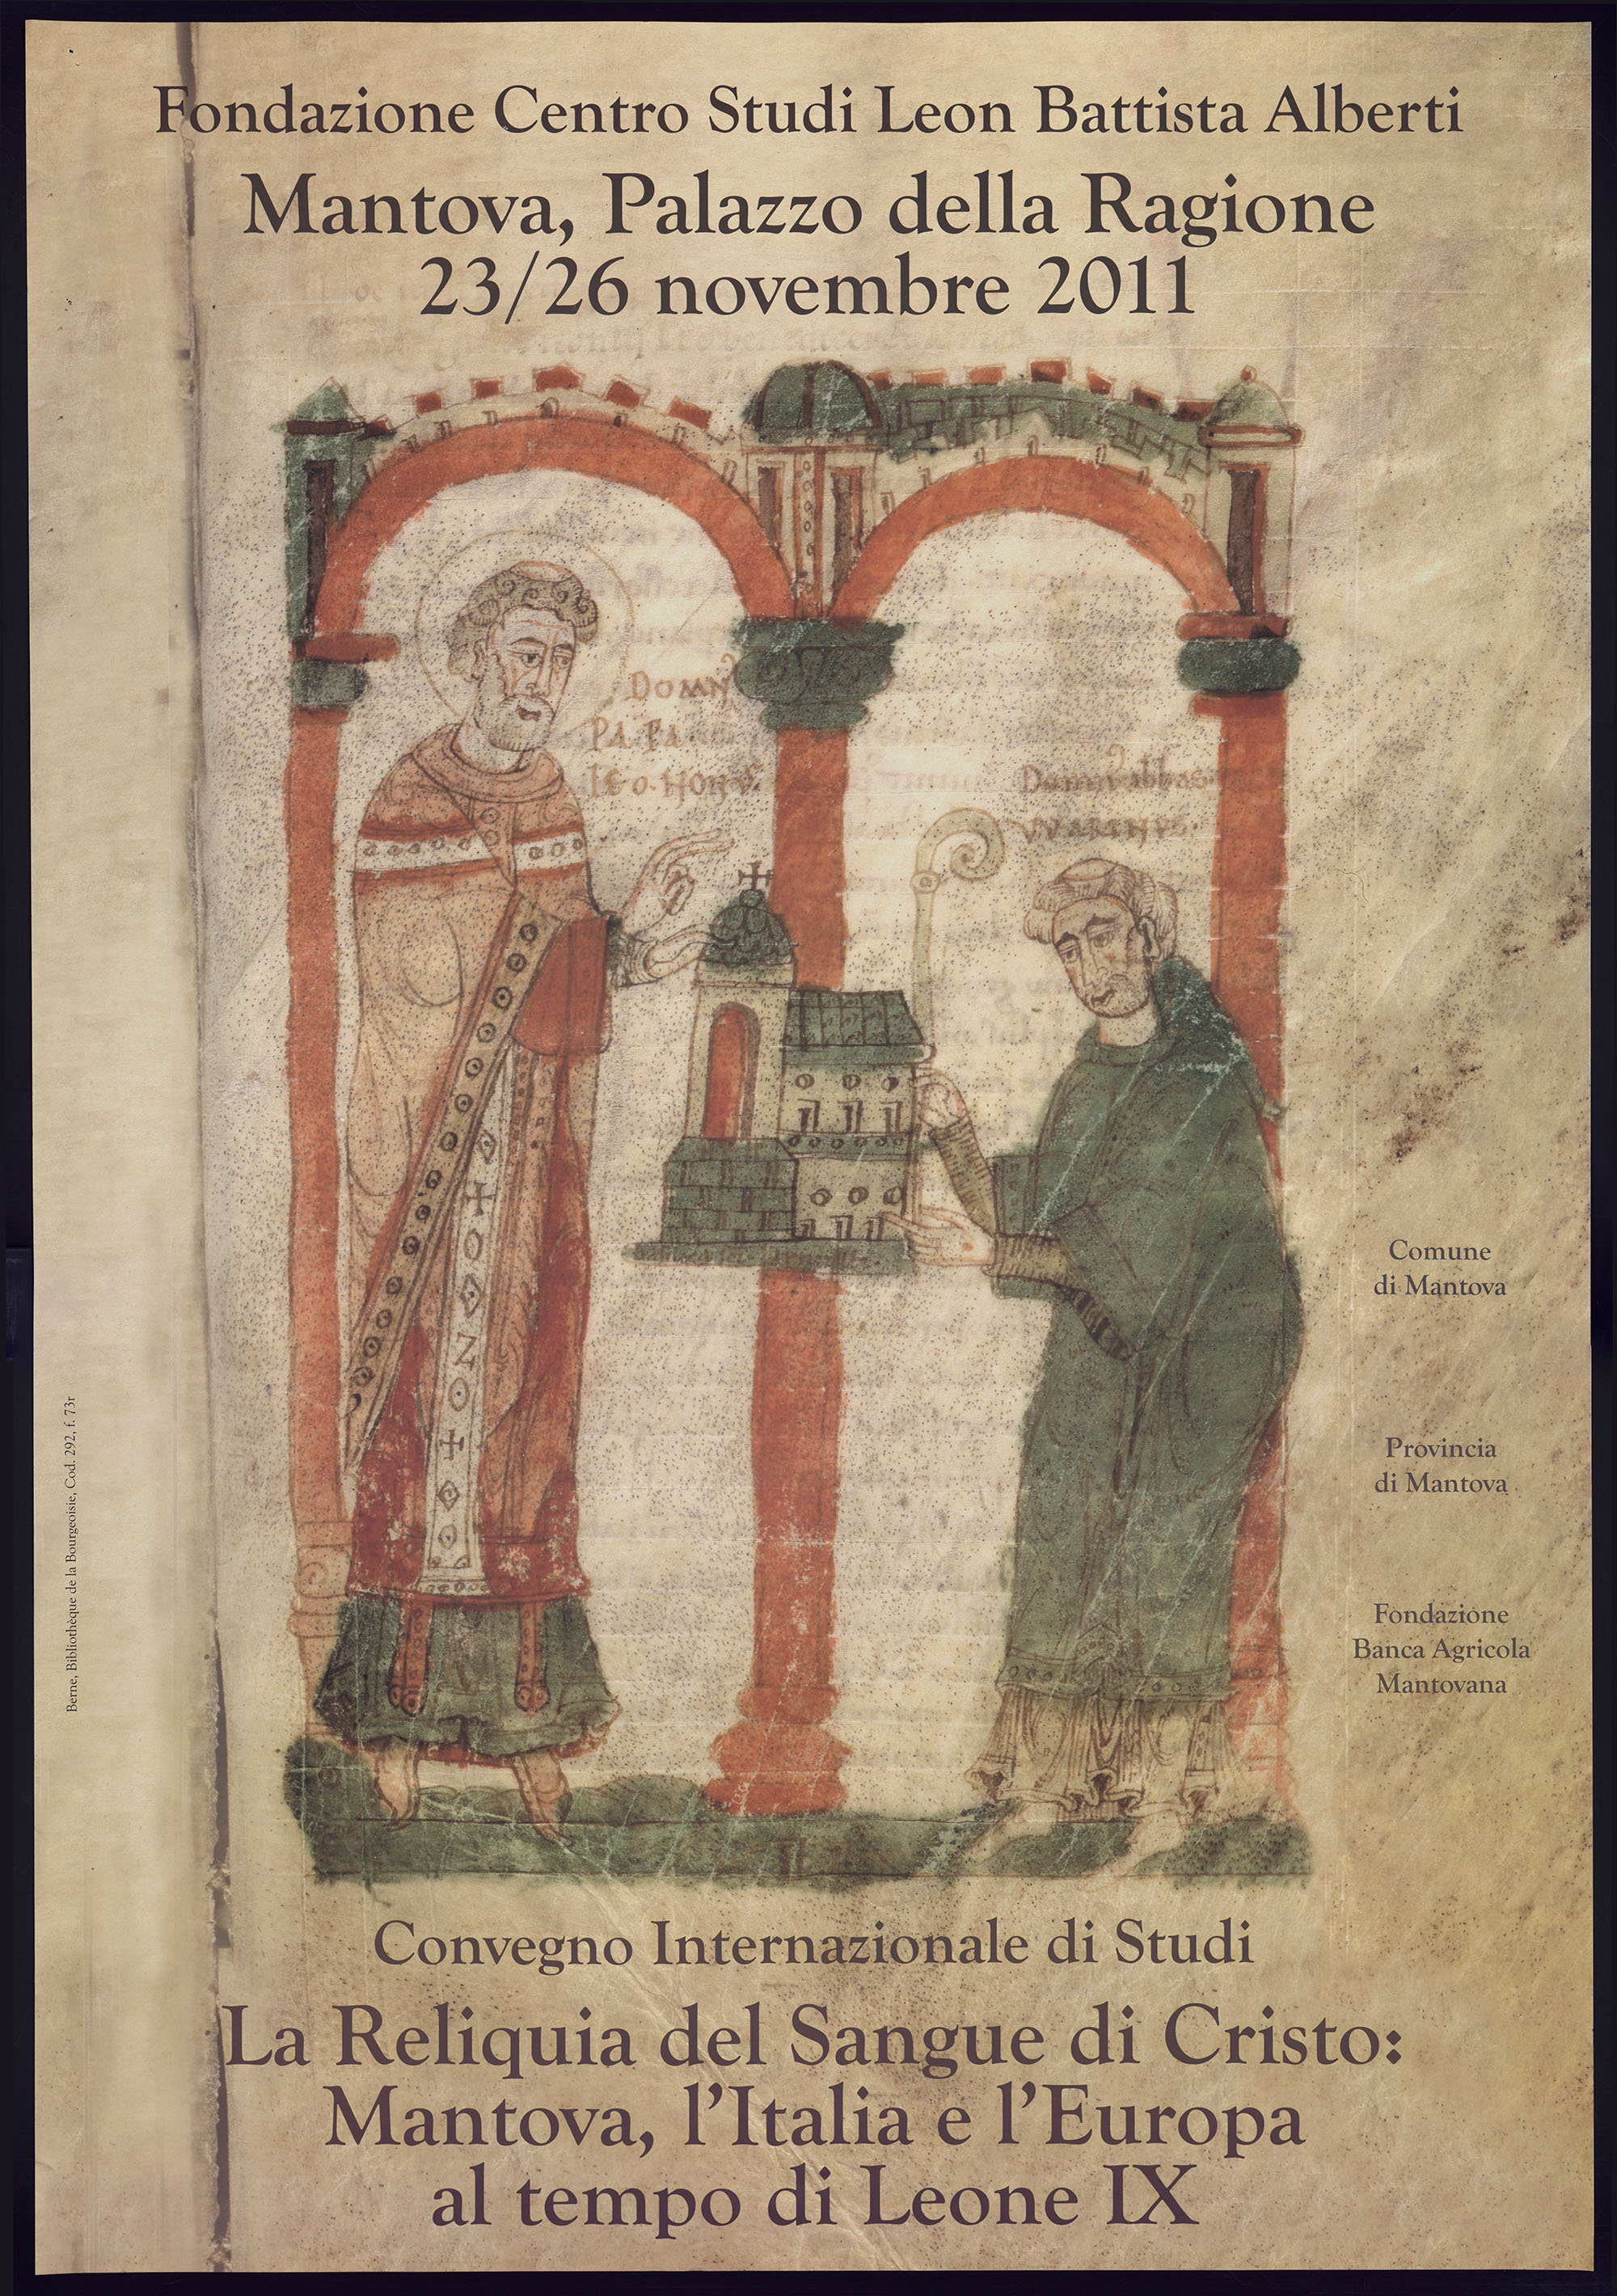 Fondazione Centro Studi Leon Battista Alberti
Mantova, Palazzo della Ragione
23/26 novembre 2011
DOMN
PAPA
LEO. NON
Domn abbas
VVARINVS.
Comune
di Mantova
Provincia
di Mantova
Fondazione
Banca Agricola
Mantovana
Berne, Bibliothèque de la Bourgeoisie, Cod. 292, f. 73r
Convegno Internazionale di Studi
La Reliquia del Sangue di Cristo:
Mantova, l'Italia e l'Europa
al tempo di Leone IX